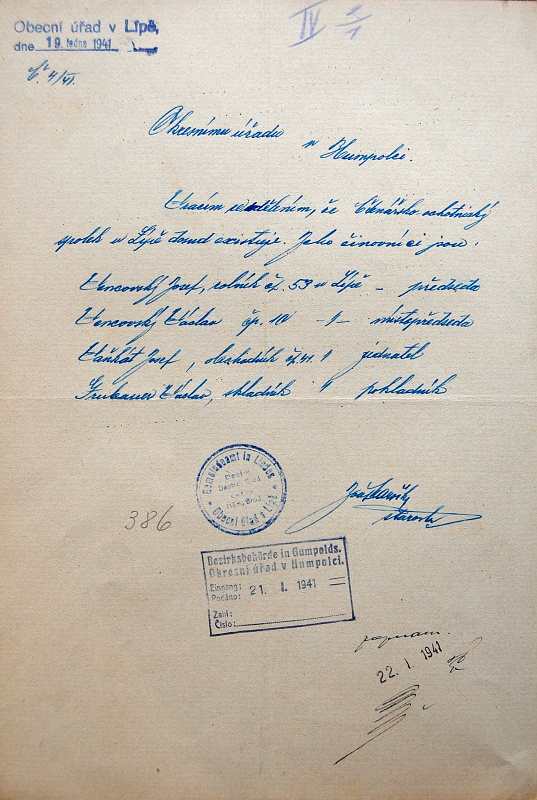 Obecní úřad v Lípě,
dne 19. ledna 1941
Č. 4/41.
IV 2/1
Okresnímu úřadu
v Humpolci.
Vracím se sdělením, že Čtenářsko ochotnický
spolek v Lípě dosud existuje. Jako činovníci jsou:
Vencovský Josef, rolník čp. 53 v Lípě – předseda
Vencovský Václav čp. 10 místopředseda
Josef, obchodník čp. 41. " jednatel
Václav, skladník " pokladník
Gemeindeamt in Lindes
Obecní úřad v Lípě
386
starosta
Bezirksbehörde in Gumpolds.
Okresní úřad v Humpolci.
Eingang:
Podáno: 21. I. 1941
Zahl:
Číslo:
22. I. 1941